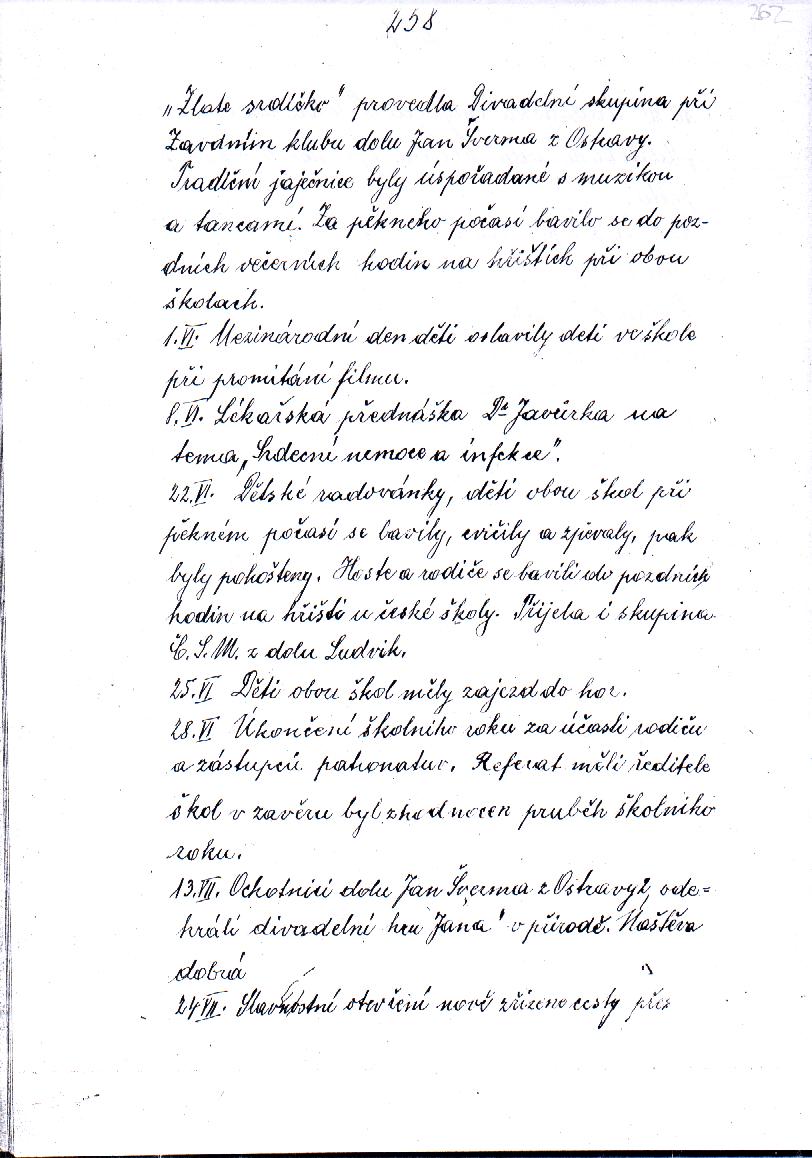 258
262
„Zlate srdíčko" provedla Divadelní skupina při
Zavdním klubu dolu Jan Šverma z Ostravy.
Tradiční jaječnice byly úspořadané s muzikou
a tancamí. Za pěkneho počasí bavilo se do poz-
dních večerních hodin na hřištích při obou
školach.
1.VI. Mezinárodní den děti oslavily deti ve škole
při promitání filmu.
8.VI. Lékařská přednáška Dr Javůrka na
tema „Srdecní nemoce a infekce".
22.VI. Dětské radovánky, děti obou škol při
pěkném počasí se bavily, cvičily a zpievaly, pak
byly pohošteny. Hoste a rodiče se bavili do pozdních
hodin na hřišti u české školy. Přijela i skupina
Č.S.M. z dolu Ludvik.
25.VI Děti obou škol měly zajezd do hor.
28.VI Úkončení školního roku za účasti rodiču
a zástupců patronatuv. Referat měli ředitele
škol v zavěru byl zhodnocen pruběh školniho
roku.
13.VII. Ochotnici dolu Jan Šverma z Ostravy 2, ode=
hráli divadelní hru „Jana" v přírodě. Naštěva
dobrá
24.VII. Slavnostní otevření nově zřizene cesty přez